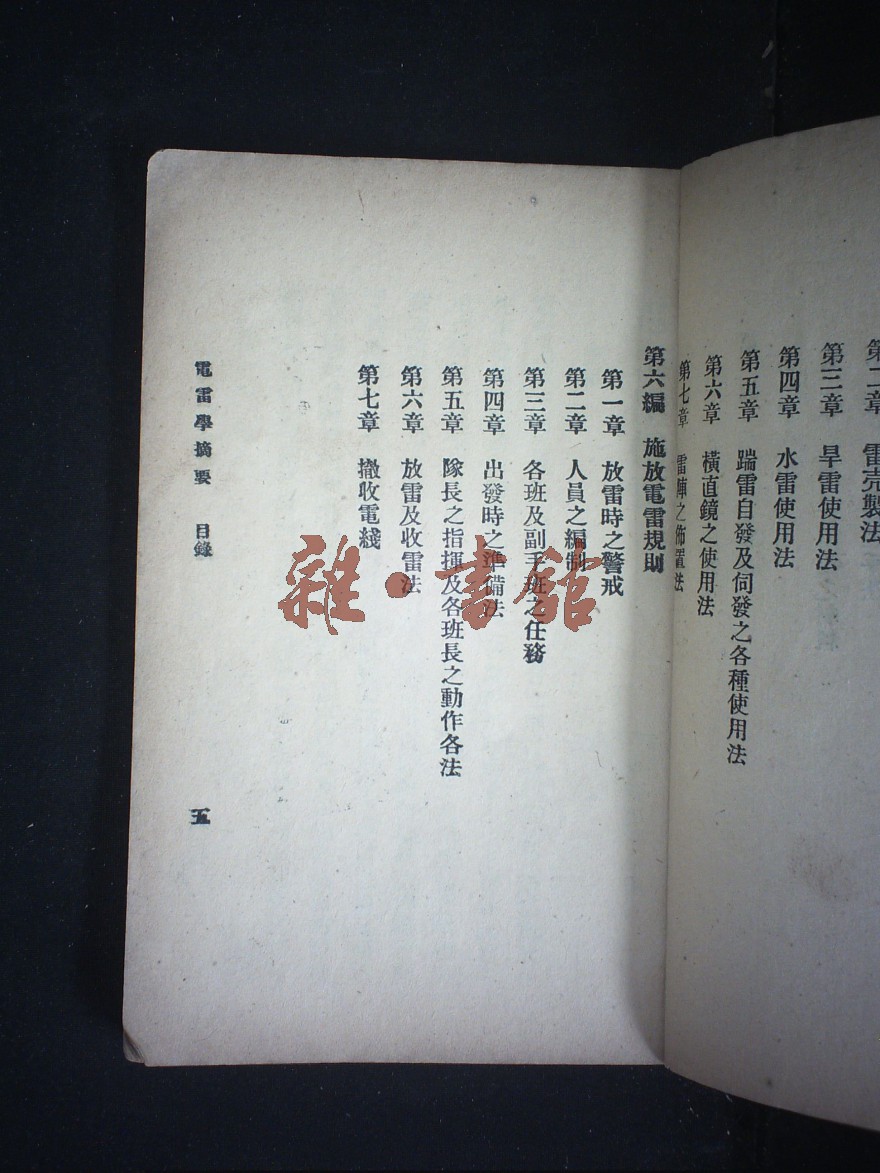 第二章　雷壳製法
第三章　旱雷使用法
第四章　水雷使用法
第五章　踹雷自發及伺發之各種使用法
第六章　橫直鏡之使用法
第七章　雷陣之佈置法
第六編　施放電雷規則
第一章　放雷時之警戒
第二章　人員之編制
第三章　各班及副手班之任務
第四章　出發時之準備法
第五章　隊長之指揮及各班長之動作各法
第六章　放雷及收雷法
第七章　撤收電綫
電雷學摘要　目錄
五
雜·書館